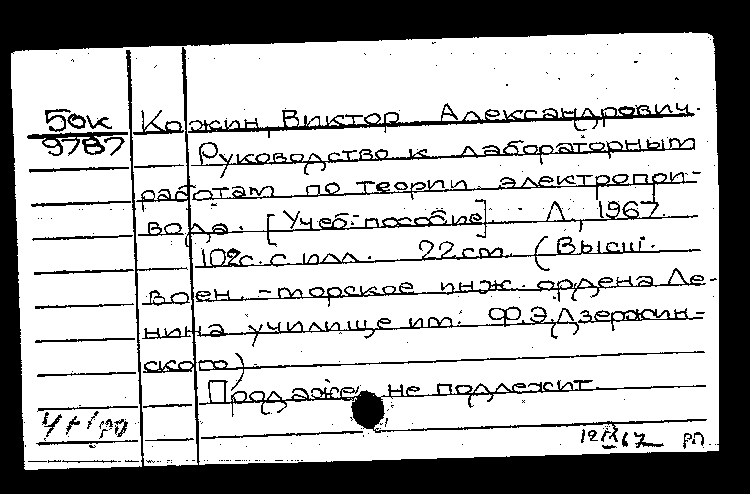 50к Кожин, Виктор Александрович.
9787
Руководство к лабораторным
работам по теории электропри-
вода. [Учеб. пособие]. Л., 1967.
102с. с илл. 22см. (Высш.
воен.-морское инж. ордена Ле-
нина училище им. Ф.Э.Дзержин-
ского).
Продаже не подлежит.
67 рп